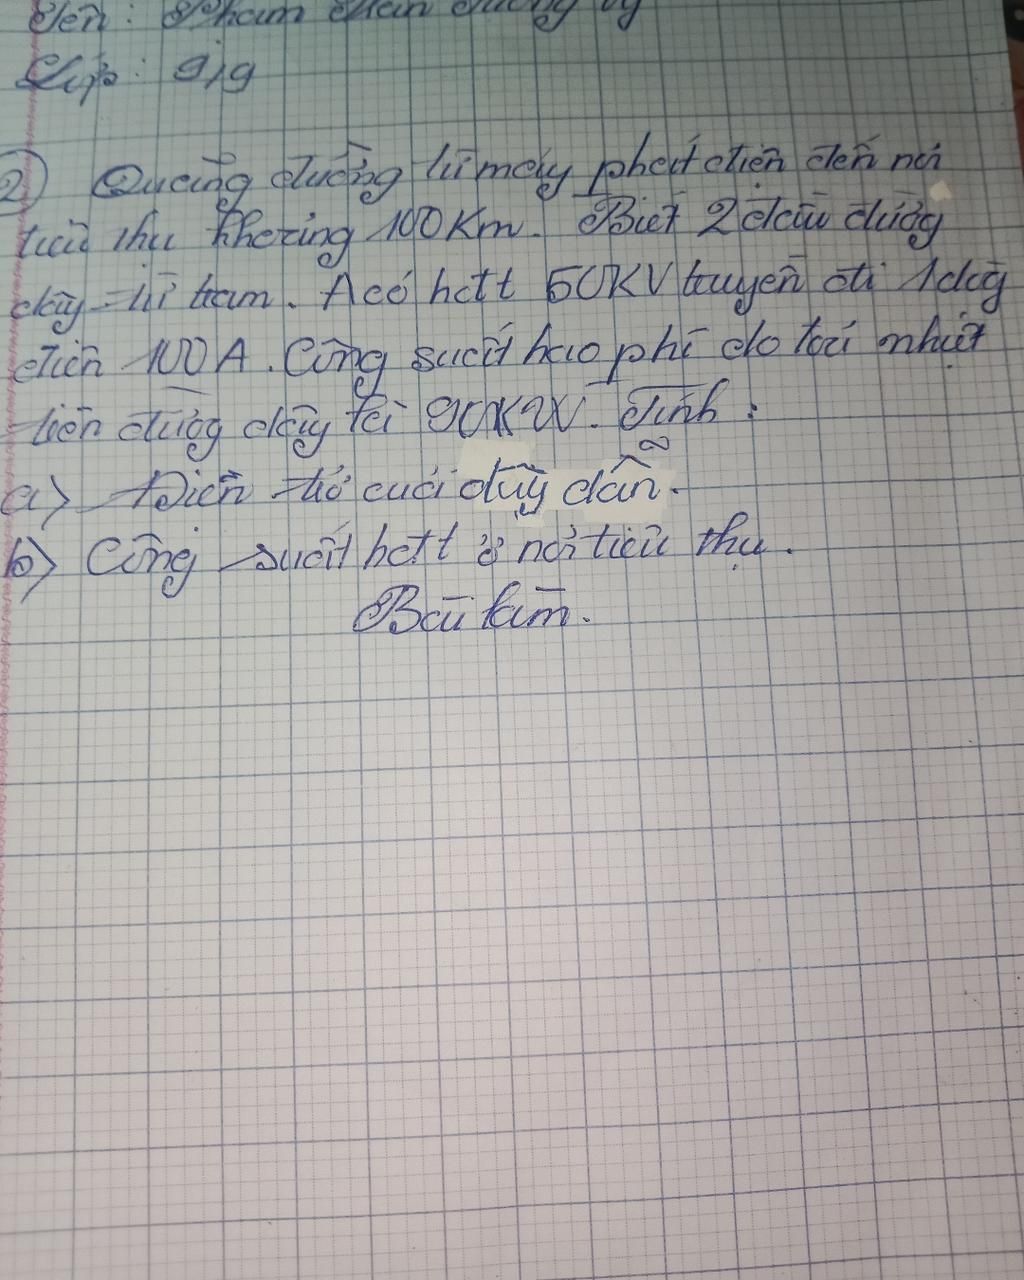 Tên: Phạm
Lớp: 9/9
2) Quãng đường từ máy phát điện đến nơi
tiêu thụ khoảng 100Km. Biết 2 đầu đường
dây từ trạm. A có hđt 50KV truyền đi 1 dòng
điện 100A. Công suất hao phí do toả nhiệt
trên đường dây tải 90KW. Tính:
a) Điện trở của dây dẫn.
b) Công suất hđt ở nơi tiêu thụ.
Bài làm.